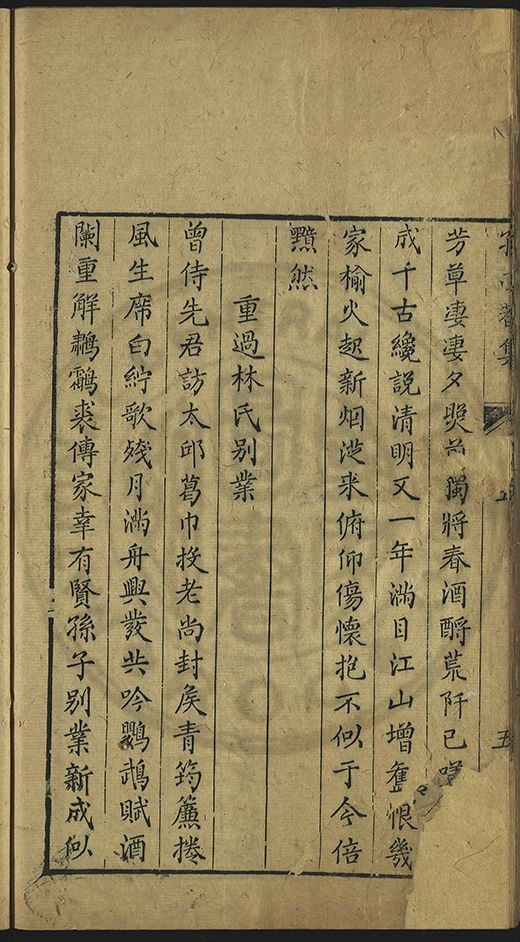 芳草凄凄夕照前獨將春酒酹荒阡已
成千古纔說清明又一年滿目江山增舊恨幾
家榆火起新烟從来俯仰傷懷抱不似于今倍
黯然
重過林氏別業
曾侍先君訪太邱葛巾投老尚封矦青筠簾捲
風生席白紵歌殘月滿舟興發共吟鸚鵡賦酒
闌重解鷫鸘裘傳家幸有賢孫子別業新成似